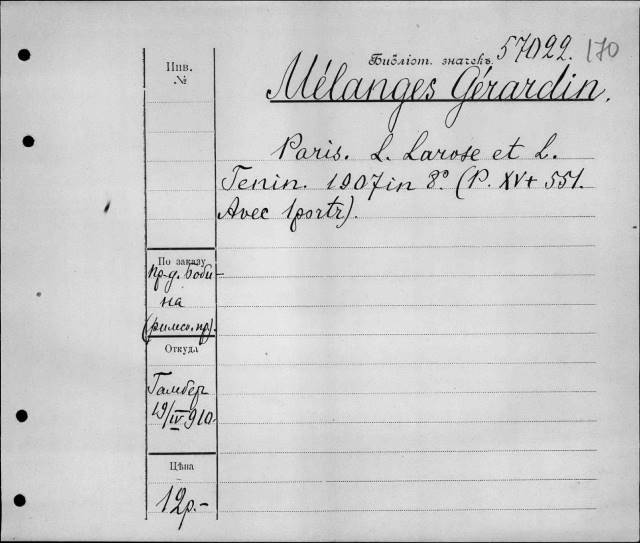 Инв.
№
Библіот. значекъ 57022. 170
Mélanges Gérardin.
Paris. L. Larose et L.
Tenin. 1907 in 8° (P. XV + 551.
Avec 1 portr).
По заказу
пр-д. Боби-
на
(римск. пр).
Откуда
Гамбер
19/IV 910.
Цѣна
12р.-